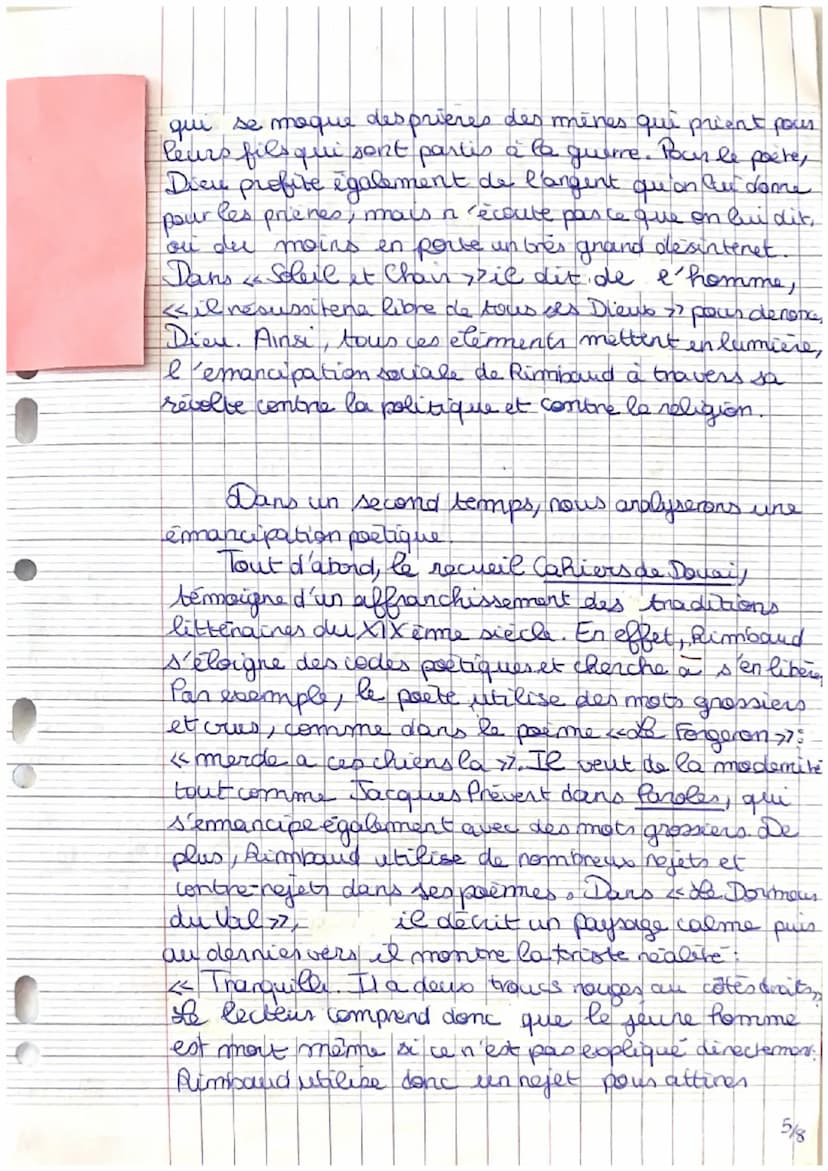 qui se moque des prières des mères qui prient pour
leurs fils qui sont partis à la guerre. Pour le poète,
Dieu profite également de l'argent qu'on lui donne
pour les prières, mais n'écoute pas ce que on lui dit,
ou du moins en porte un très grand désintéret.
Dans « Soleil et Chair » il dit de l'homme,
« il ressuscitera libre de tous ses Dieux » pour
Dieu. Ainsi, tous ces éléments mettent en lumière,
l'émancipation sociale de Rimbaud à travers sa
révolte contre la politique et contre la religion.
Dans un second temps, nous analyserons une
émancipation poétique.
Tout d'abord, le recueil Cahiers de Douai,
témoigne d'un affranchissement des traditions
littéraires du XIXème siècle. En effet, Rimbaud
s'éloigne des codes poétiques et cherche à s'en libérer
Par exemple, le poète utilise des mots grossiers
et crus, comme dans le poème « Le Forgeron » :
« merde a ces chiens la ». Il veut de la modernité
tout comme Jacques Prévert dans Paroles, qui
s'émancipe également avec des mots grossiers. De
plus, Rimbaud utilise de nombreux rejets et
contre-rejets dans ses poèmes. Dans « Le Dormeur
du Val », il décrit un paysage calme puis
au dernier vers il montre la triste réalité :
« Tranquille. Il a deux trous rouges au côtés droits,,
Le lecteur comprend donc que le jeune homme
est mort même si ce n'est pas expliqué directement.
Rimbaud utilise donc un rejet pour attirer
5/8